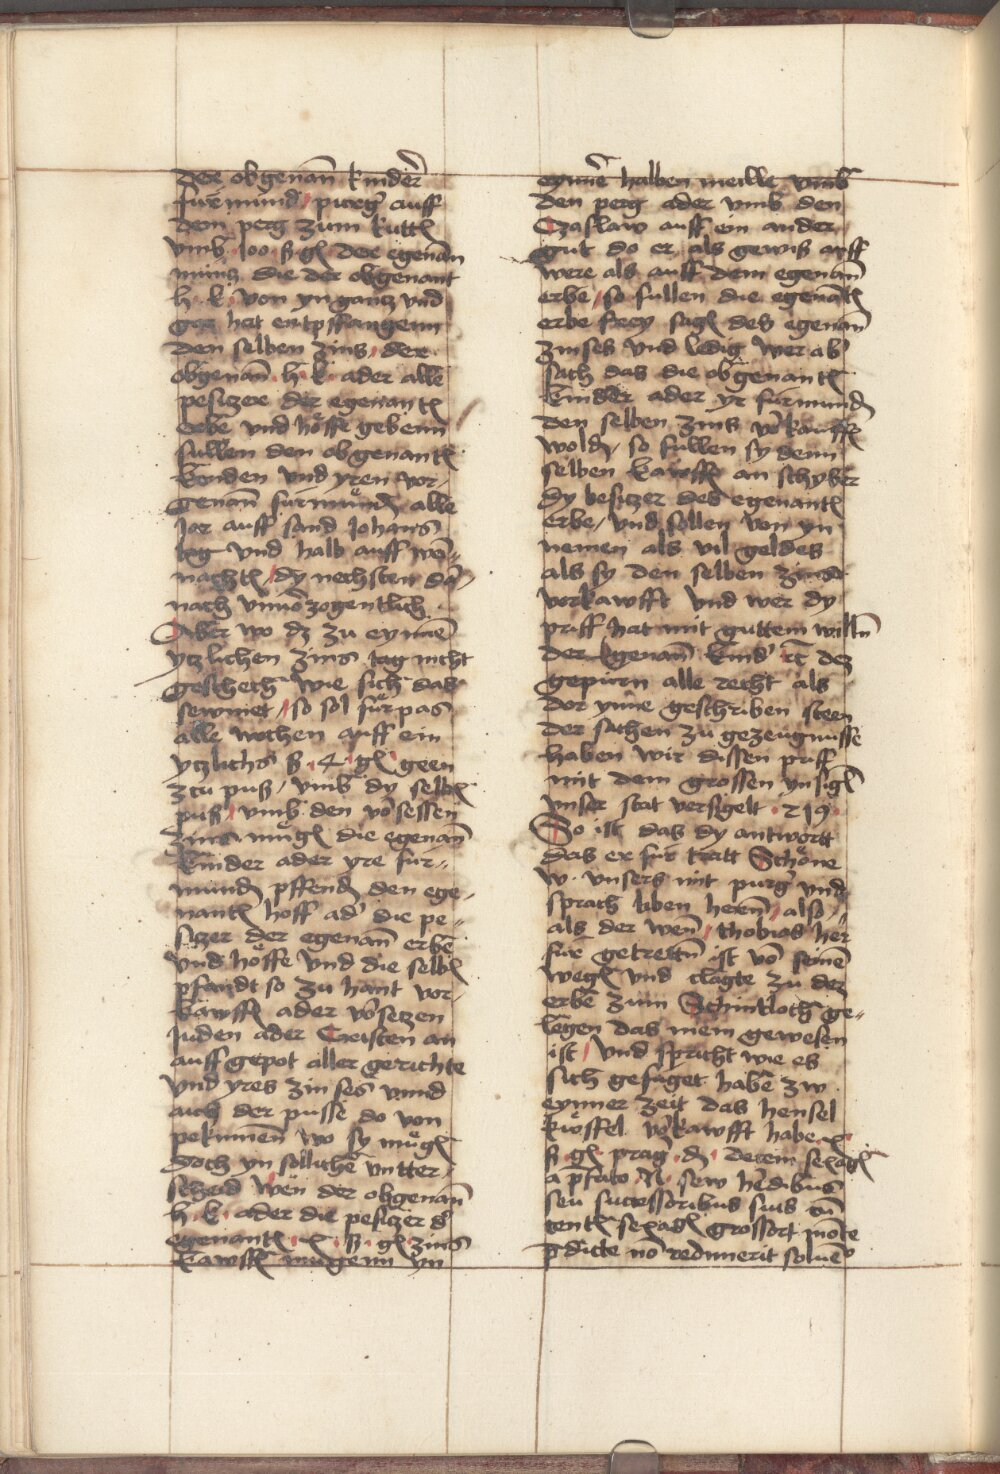 der obgenan̄ kinder̄
fürmund / purg̛ auff
dem perg zum kuttꝭ
vmb · 100 ß gꝭ der egenan̄
müncz die der obgenant
h · k · von yn gancz vnd
gar hat entpffangenn
den selben zins / der
obgenan̄ · h · k · ader alle
pesiczer der egenantꝭ
erbe vnd höffe gebenn
sullen den obgenantꝭ
kinden vnd yren vor-
genan̄ fürmündꝭ alle
Jar auff sand Johans
tag vnd halb auff wē-
nachtꝭ / dy nechsten dar
nach vnuorzogentlich
Aber wo dz zu eynnē
yczlichen zins tag nicht
geschech wie sich das
sewmet / so sol fürpas
alle wochen auff ein
yczlichs ß · 4 · gꝭ geen
zcu puß / vmb dy selbꝭ
puß / vmb den v̄sessen
zins mügꝭ die egenan̄
kinder ader yre für-
mundꝭ pffendꝭ den ege-
nantꝭ hoff ad̛ die pe-
siczer der egenan̄ erbe
vnd höffe vnd die selbꝭ
pfandt so zu hant vor-
kawffꝭ ader v̄seczen
Juden ader Cristen an
auffgepot aller gerichte
vnd yres zinses vnnd
auch der pusse do von
pekumen̄ wo sy mügꝭ
doch yn sollichē vntter-
scheid wen der obgenan̄
h · k · ader die pesiczer d̛
egenantꝭ · x · ß · gꝭ zins
kawffꝭ mügenn yn
eynnē halben meille vmb
den perg ader vmb den
Czaslaw auff ein ander
gut do er als gewiß auff
were als auff dem egenan̄
erbe / so sullen die egenātꝭ
erbe frey sagꝭ des egenan̄
zinses vnd ledig wer ab̛
sach das die obgenantꝭ
kinder ader yr fürmundꝭ
den selben zins v̄kauffꝭ
woldꝭ / so sullen sy denn
selben kawffꝭ an schyber
dy besiczer des egenantꝭ
erbe / vnd sollen von yn
nemen als vil geldes
als sy den selben zins
vorkawfft vnd wer dy
priff hat mit guttem willn̄
der egenan̄ kind̛ rc̄ dez
gepürn alle recht als
dor ynne geschriben steen
der sachen zu gezeugnusse
haben wir dissen priff
mit dem grossen ynsigꝭ
vnser stat versigelt · 219 ·
So ist das dy antwortt
das er für tratt Schöne
w · vnsers mit purg̛ vnd
sprach liben heren̄ / also
als der wen̄ / thobias her
für getrettn̄ ist vō seinē
wegꝭ vnd clagte zu dez
erbe zum Schintloch ge-
legen das mein gewesen
ist / vnd spricht wie es
sich gefuget habe zw
eynner zeit das hensel
küöffel v̄kawfft habe · x ·
ß gꝭ prag̛ · dꝭ · decem sexagꝭ
a p̄fato · N · sew heredibus
seu successoribus suis cū
centꝭ sexagꝭ grossorꝭ mōte
p̄dicte nō redimerit soluē